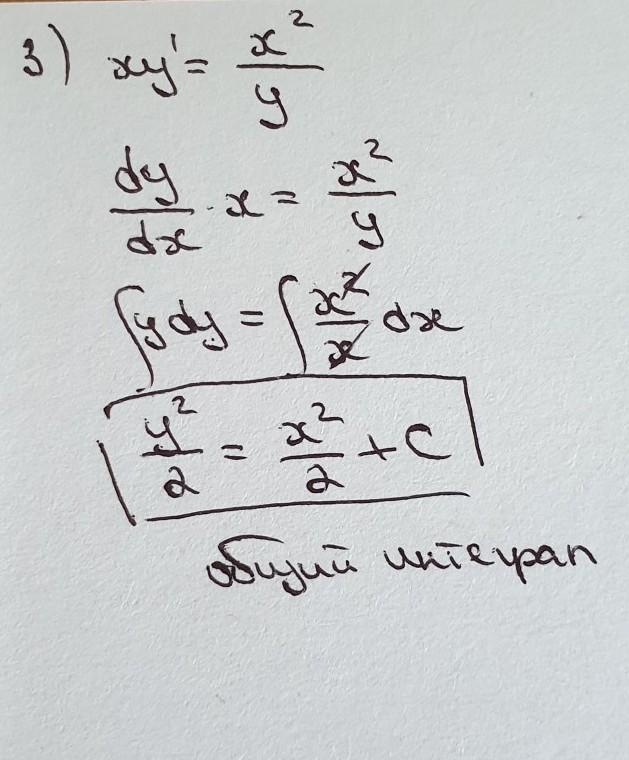 3) xy' = x²/y
dy/dx · x = x²/y
∫y dy = ∫x²/x dx
y²/2 = x²/2 + C
общий интеграл